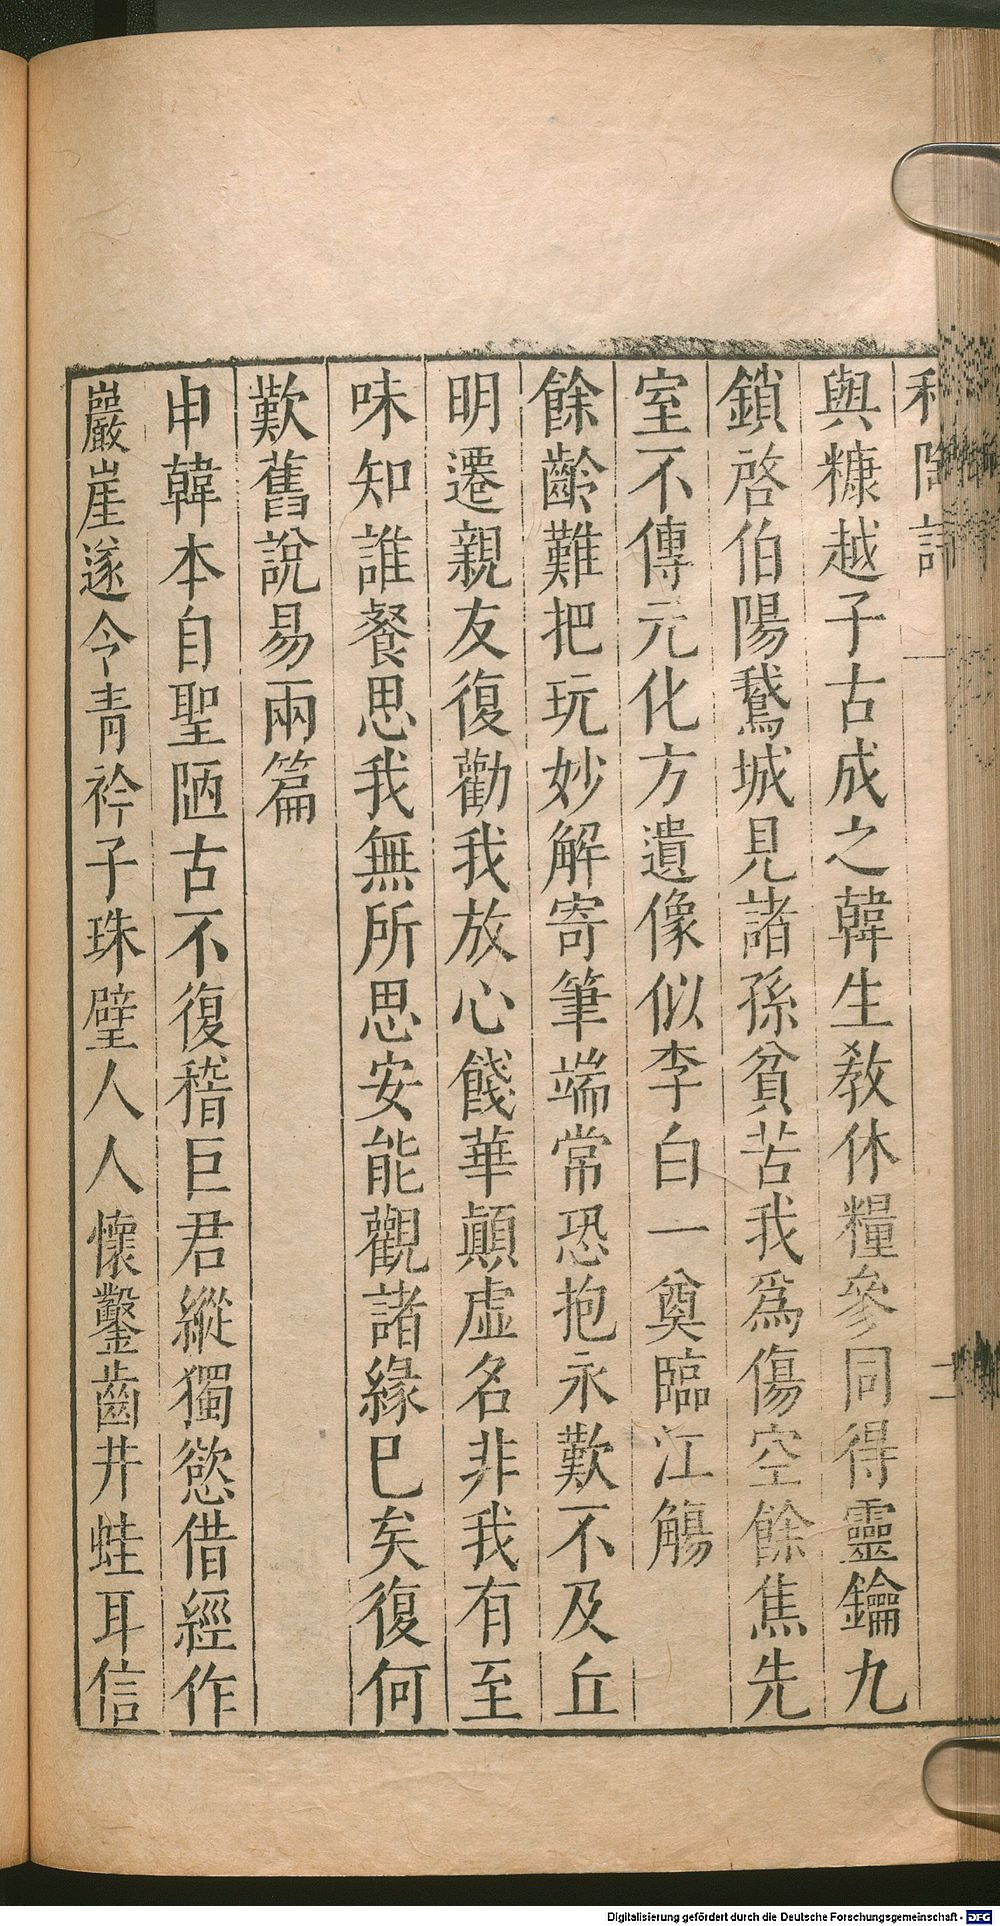 和陶詩 二
與糠越子古成之韓生教休糧參同得靈鑰九
鎖啓伯陽鵞城見諸孫貧苦我爲傷空餘焦先
室不傳元化方遺像似李白一奠臨江觴
餘齡難把玩妙解寄筆端常恐抱永歎不及丘
明遷親友復勸我放心餞華顛虛名非我有至
味知誰餐思我無所思安能觀諸緣已矣復何
歎舊說易兩篇
申韓本自聖陋古不復稽巨君縱獨慾借經作
巖崖遂令青衿子珠璧人人懷鑿齒井蛙耳信
Digitalisierung gefördert durch die Deutsche Forschungsgemeinschaft - DFG